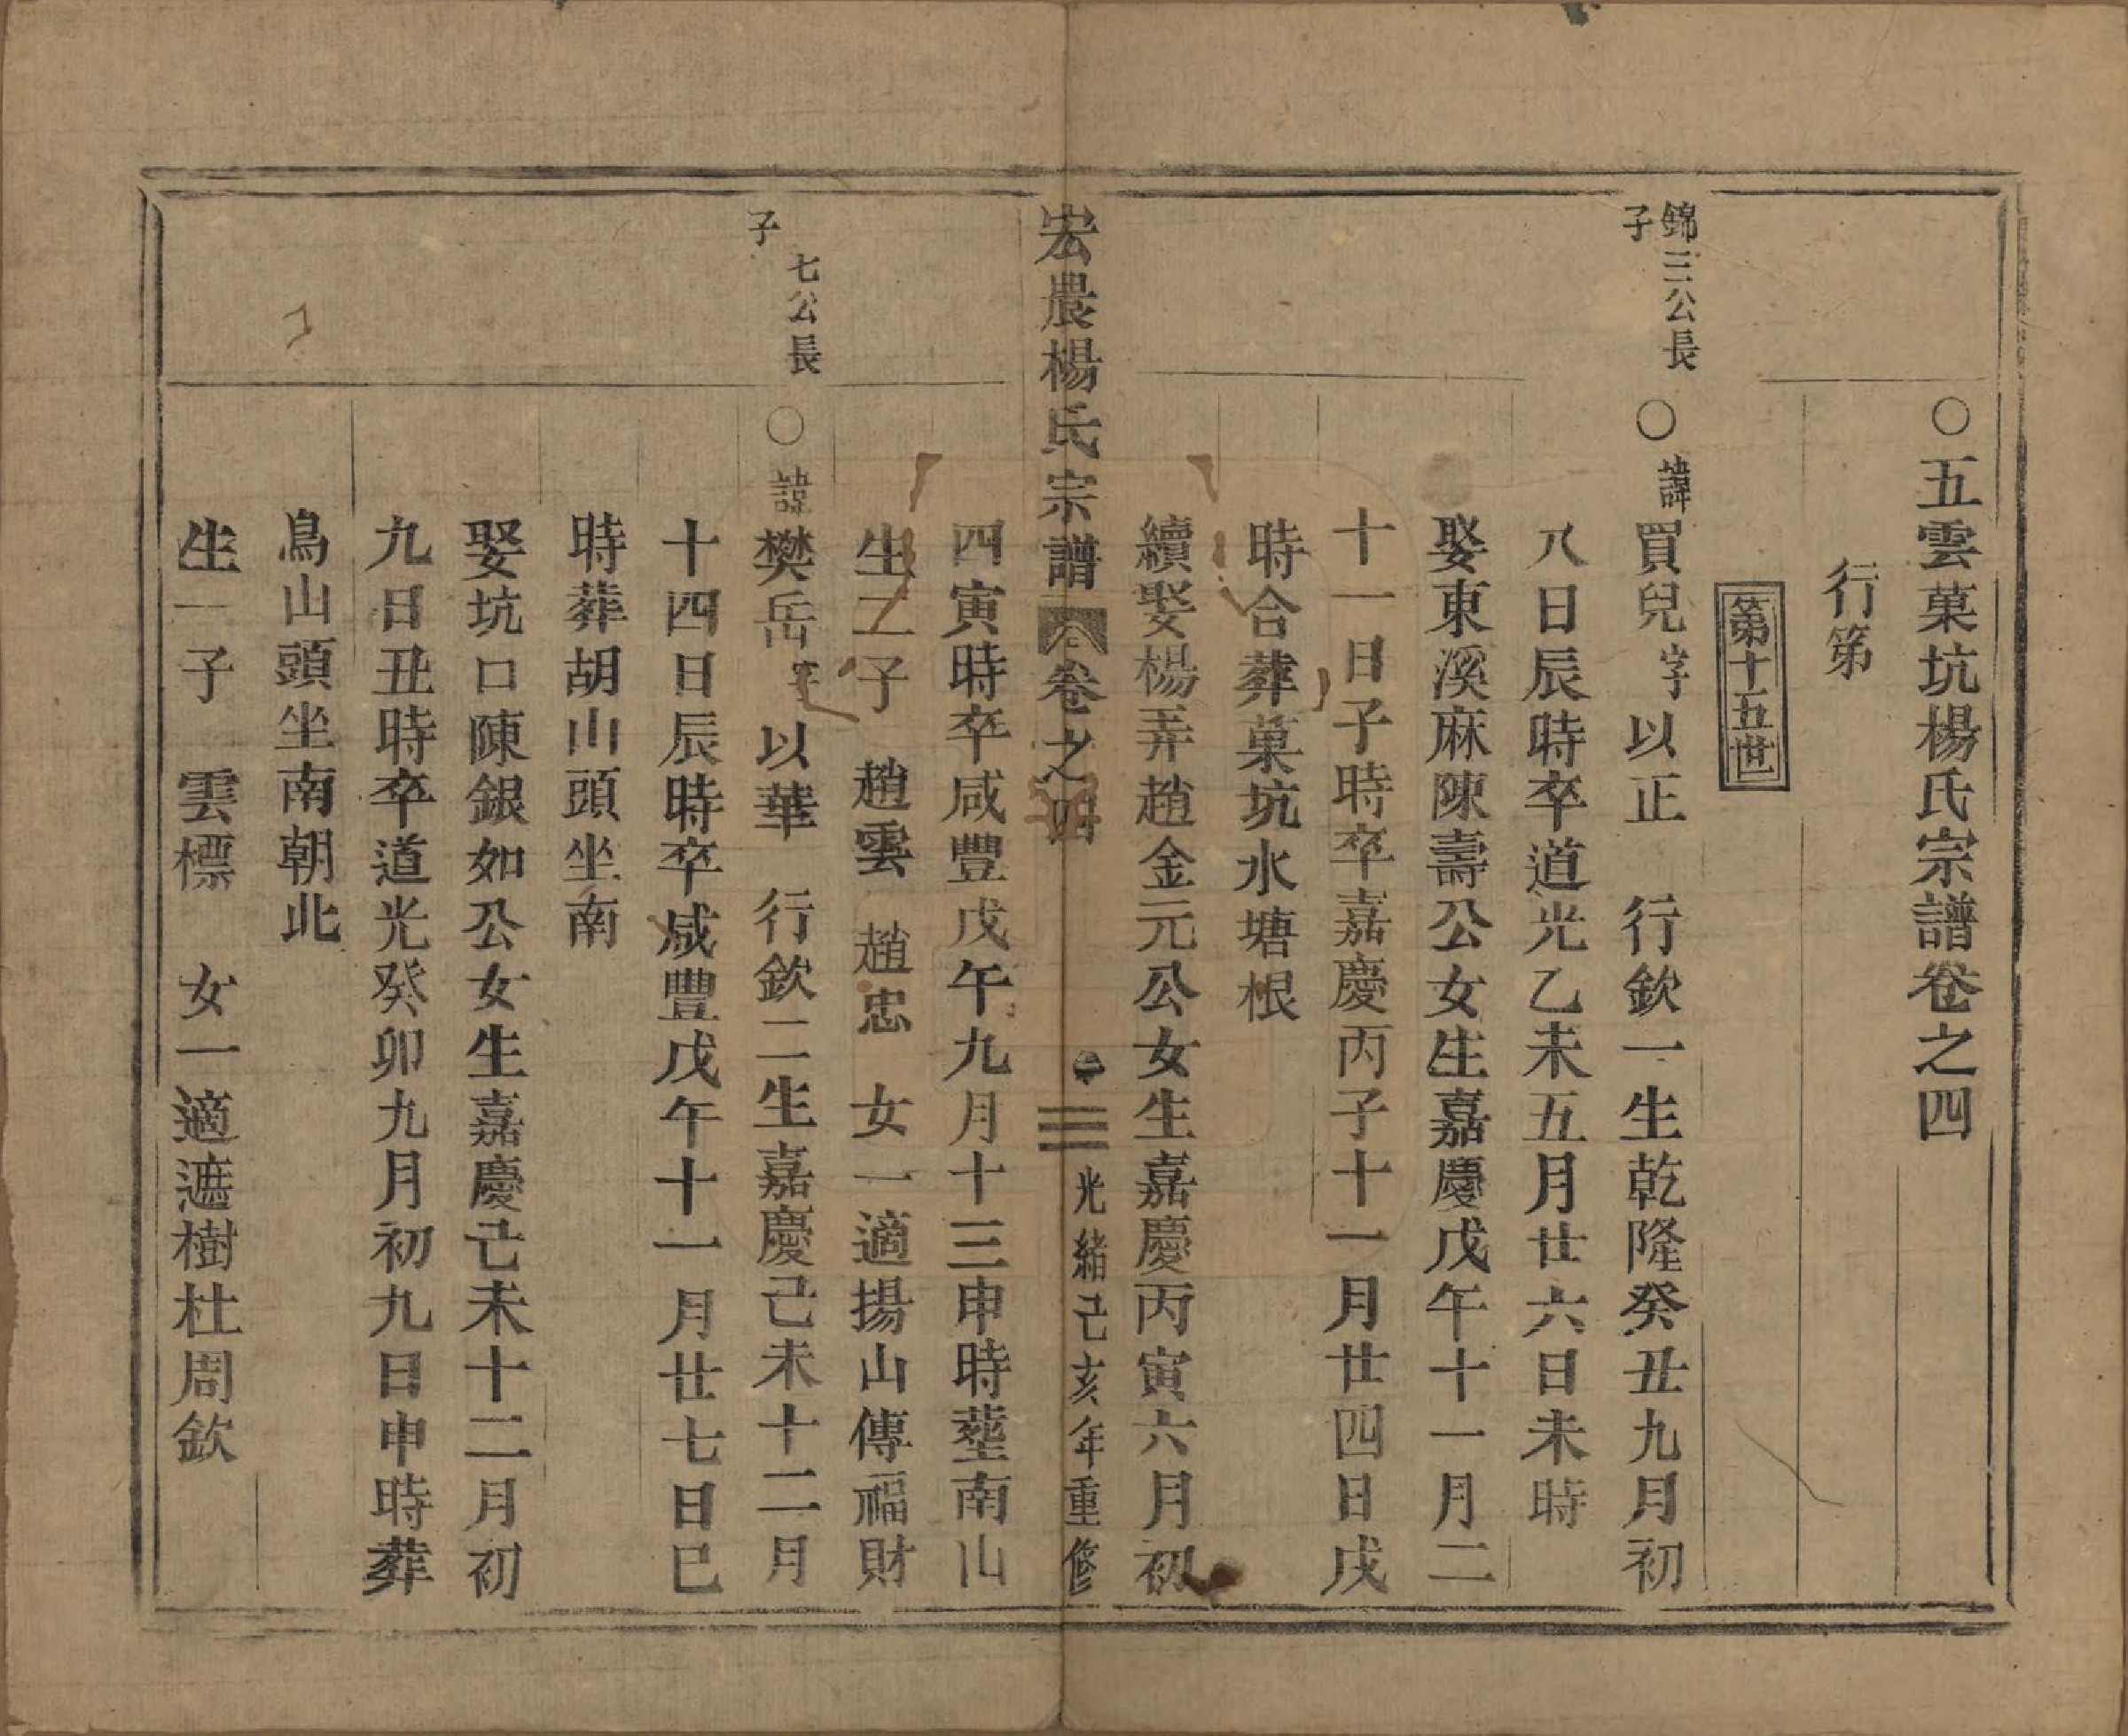 ○五雲菓坑楊氏宗譜卷之四
行第
第十五世
錦三公長子
○諱買兒字以正 行欽一生乾隆癸丑九月初
八日辰時卒道光乙未五月廿六日未時
娶東溪麻陳壽公女生嘉慶戊午十一月二
十一日子時卒嘉慶丙子十一月廿四日戌
時合葬菓坑水塘根
續娶楊弄趙金元公女生嘉慶丙寅六月初
宏農楊氏宗譜 卷之四 一 光緒己亥年重修
四寅時卒咸豐戊午九月十三申時塟南山
生二子 趙雲 趙忠 女一適揚山傳福財
七公長子
○諱樊岳字以華 行欽二生嘉慶己未十二月
十四日辰時卒咸豐戊午十一月廿七日巳
時葬胡山頭坐南
娶坑口陳銀如公女生嘉慶己未十二月初
九日丑時卒道光癸卯九月初九日申時葬
鳥山頭坐南朝北
生一子 雲標 女一適遮樹杜周欽